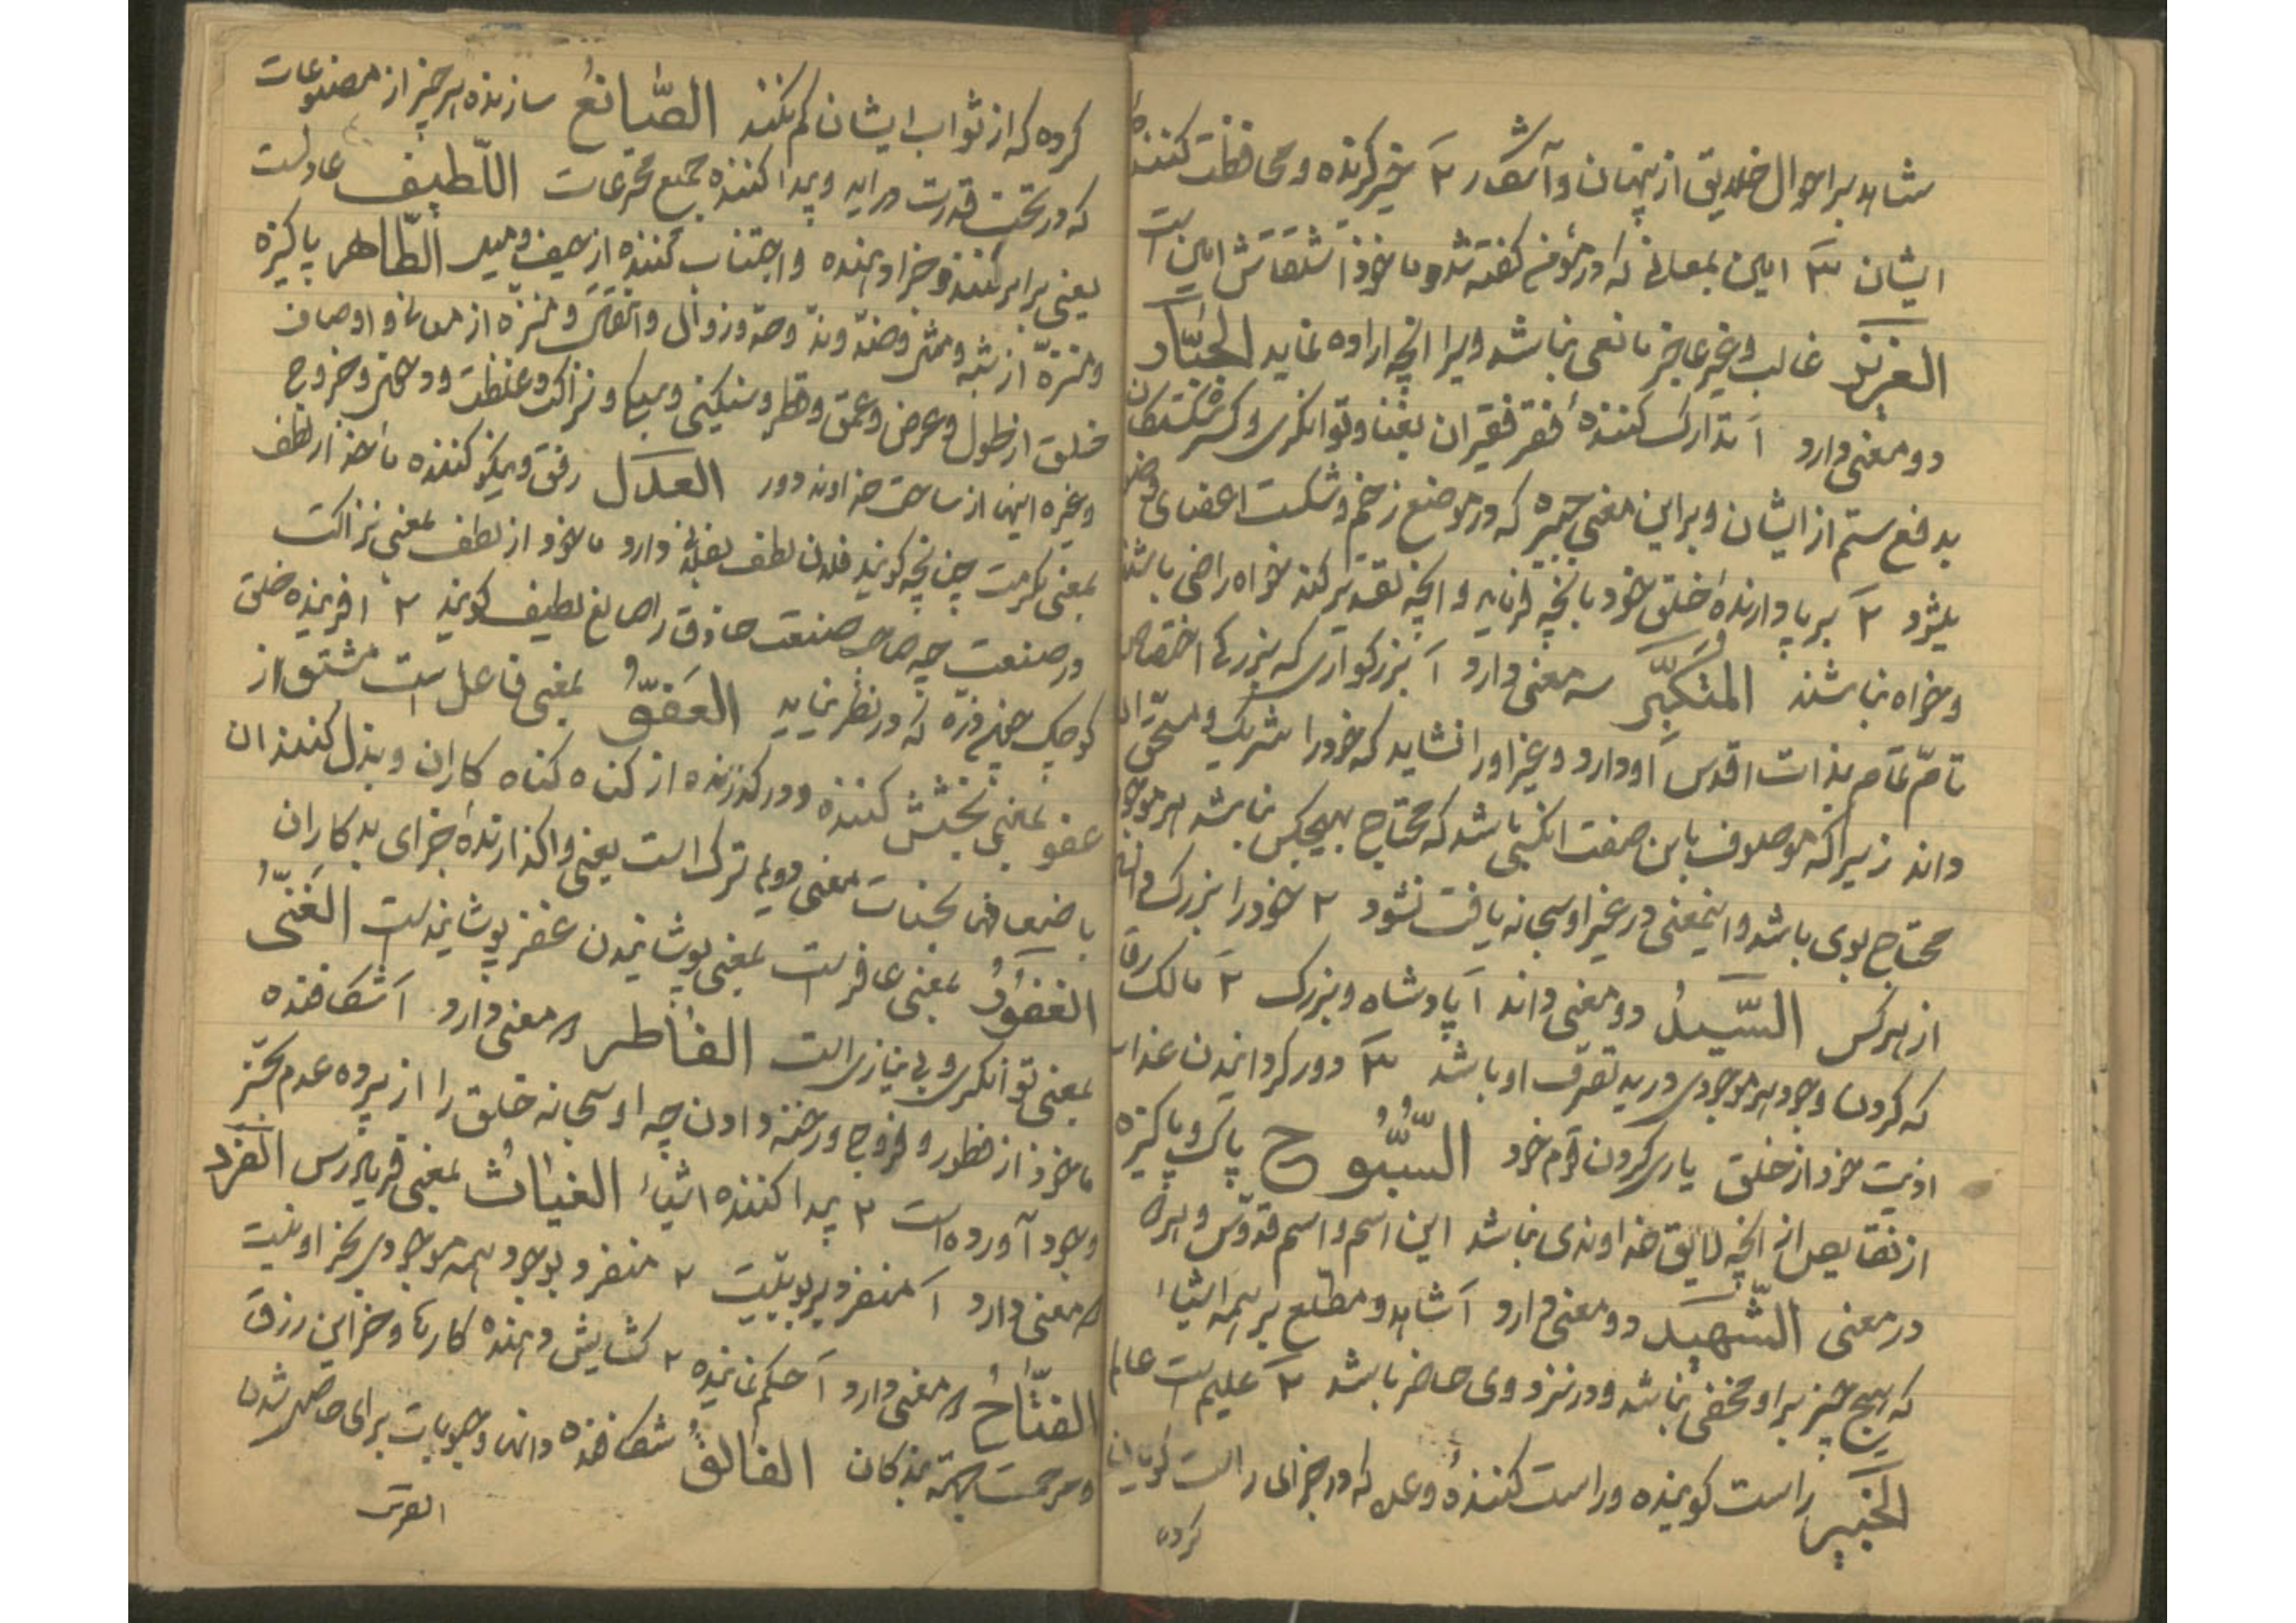 شاهد بر احوال خلایق از پنهان و آشکار ۲ خبر گیرنده و محافظت کننده
ایشان ۳ امین بمعانی که در مؤمن گفته شد و ماخوذ اشتقاقش امین است
العزیز غالب و غیر عاجز مانعی نباشد ویرا انچه اراده نماید الجبّار
دو معنی دارد ا تدارک کننده فقر فقیران بغنا و توانکری و کسر شکستکان
بدفع ستم از ایشان و بر این معنی جبیره که در موضع زخم و شکست اعضای
یلیثرد ۲ برپا دارندهٔ خلق خود بانچه فرماید و انچه تقدیر کند خواه راضی باشند
و خواه نباشند المتکبّر سه معنی دارد ا بزرکواری که بزرکی اختصاص
تامّ تمام بذات اقدس او دارد و غیر او را نشاید که خود را شریک و مستحق ان
داند زیرا که موصوف باین صفت انکسی باشد که محتاج بهیچکس نباشد هر موجود
محتاج بوی باشد و اینمعنی در غیر او سبحانه یافت نشود ۲ خود را بزرک داند
از هر کس السّیدُ دو معنی داند ا پادشاه و بزرک ۲ مالک رقا
که کردن وجود هر موجودی در ید تصرف او باشد ۳ دور کردانیدن عذاب
اذیت خود از خلق یاری کردن مردم خود السُّبُّوح پاک و پاکیزه
از نقایص از انچه لایق خداوندی نباشد این اسم و اسم قدوّس
در معنی الشّهید دو معنی دارد ا شاهد و مطّلع بر همه اشیاء
که هیچ چیز بر او مخفی نباشد و در نزد وی حاضر باشد ۲ علیم است عالم
الخبیر راست کوینده و راست کنندهٔ وعده که در جزای راست کویان
کرده
کرده که از ثواب ایشان کم نکند الصّانعُ سازنده هر چیز از مصنوعات
که در تحت قدرت در اید و پیدا کننده جمیع مخترعات اللّطیف عادلست
یعنی برابر کننده جزا دهنده و اجتناب کننده از حیف و میل الطّاهر پاکیزه
و منزّه از شبه و مثل و ضدّ و ندّ و حدّ و زوال و انتقال و منزه از معانی و اوصاف
خلق از طول و عرض و عمق و قطر و سنکینی و سبکی و نزاکت و غلظت و دخول و خروج
و غیره اینها از ساحت خداوند دور العدل رفق و نیکو کننده ماخذ از لطف
بمعنی مکرمت چنانچه کویند فلان لطف بفلانی دارد ماخوذ از لطف بمعنی نزاکت
در صنعت چه صاحب صنعت حاذق را صانع لطیف کویند ۲ افریننده خلق
کوچک چون ذرّه که در نظر نیاید العَفوّ بمعنی فاعل است مشتق از
عفو بمعنی بخشش کننده و در کذرنده از کناه کناه کاران و بذل کنند ان
باضعاف بحسنات معنی دویم ترک است یعنی واکذارندهٔ جزای بد کاران
الغفورُ بمعنی غافر است بمعنی پوشانیدن غفر پوشانیدن است الغنیّ
بمعنی توانکری و بی نیازی است الفاطر ۲ معنی دارد ا شکافنده
ماخوذ از فطور و فروج و رخنه دادن چه او سبحانه خلق را از پرده عدم بحیّز
وجود آورده است ۲ پیدا کننده اشیاء الغیاث بمعنی فریادرس الفرد
۲ معنی دارد ا منفرد بربوبیّت ۲ منفرد بوجود همه موجودی بجز او نیست
الفتّاحُ ۲ معنی دارد ا حکم نماینده ۲ کشایش دهنده کارها و خزاین رزق
و مرحمت بجهة بندکان الفالقُ شکافنده دانها و حبوبات برای حاصل شدن